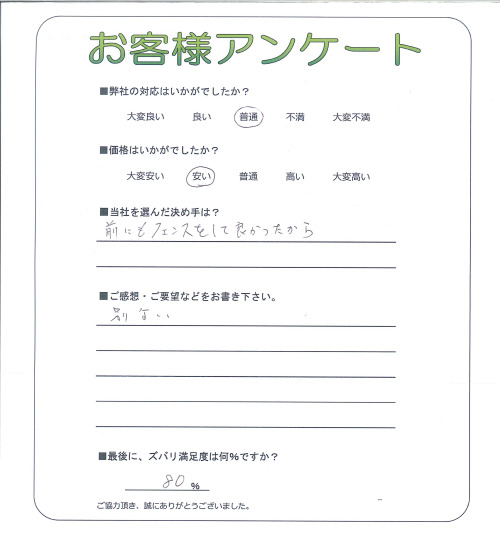 お客様アンケート
■弊社の対応はいかがでしたか？
大変良い 良い 普通 不満 大変不満
■価格はいかがでしたか？
大変安い 安い 普通 高い 大変高い
■当社を選んだ決め手は？
前にもフェンスをして良かったから
■ご感想・ご要望などをお書き下さい。
別ない
■最後に、ズバリ満足度は何%ですか？
80 %
ご協力頂き、誠にありがとうございました。